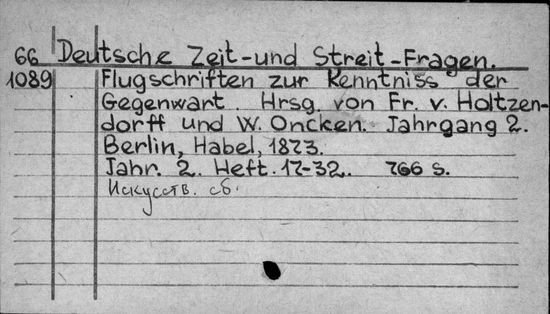 66 Deutsche Zeit-und Streit-Fragen.
1089 Flugschriften zur Kenntniss der
Gegenwart. Hrsg. von Fr. v. Holtzen-
dorff und W. Oncken. Jahrgang 2.
Berlin, Habel, 1873.
Jahr. 2. Heft. 17-32. 766 s.
Искусств. сб.